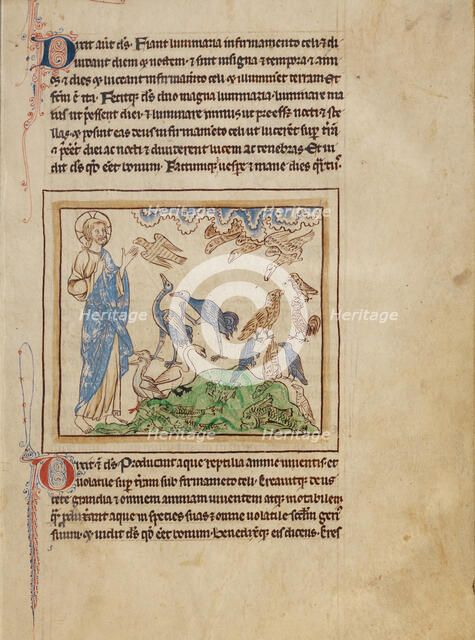 Dixit aut ds Fiant luminaria in firmamento celi et di
uidant diem et noctem et sint in signa et tempora et ann
os et dies et luceant in firmamto celi et illuminet terram Et
fcm e ita Fecitq ds duo magna luminaria luminare ma
ius ut pressent diei et luminare minus ut preesset nocti et ste
llas et posuit eas deus in firmameto celi ut lucerent sup tra
et peent diei ac nocti et diuiderent lucem ac tenebras Et ui
dit ds qd eet bonum Factumque uespe et mane dies qrtus
Heritage
Heritage
Heritage
Heritage
Heritage
Heritage
Heritage
Heritage
Dixit e ds Producant aque reptilia anime uiuentis et
uolatile sup tram sub firmameto celi Creauitque deus
cete grandia et omnem animam uiuentem atq motabilem
q pduxerant aque in species suas et omne uolatile scdm gen
suum et uidit ds qd eet bonum Benedixitque eis dicens Cres